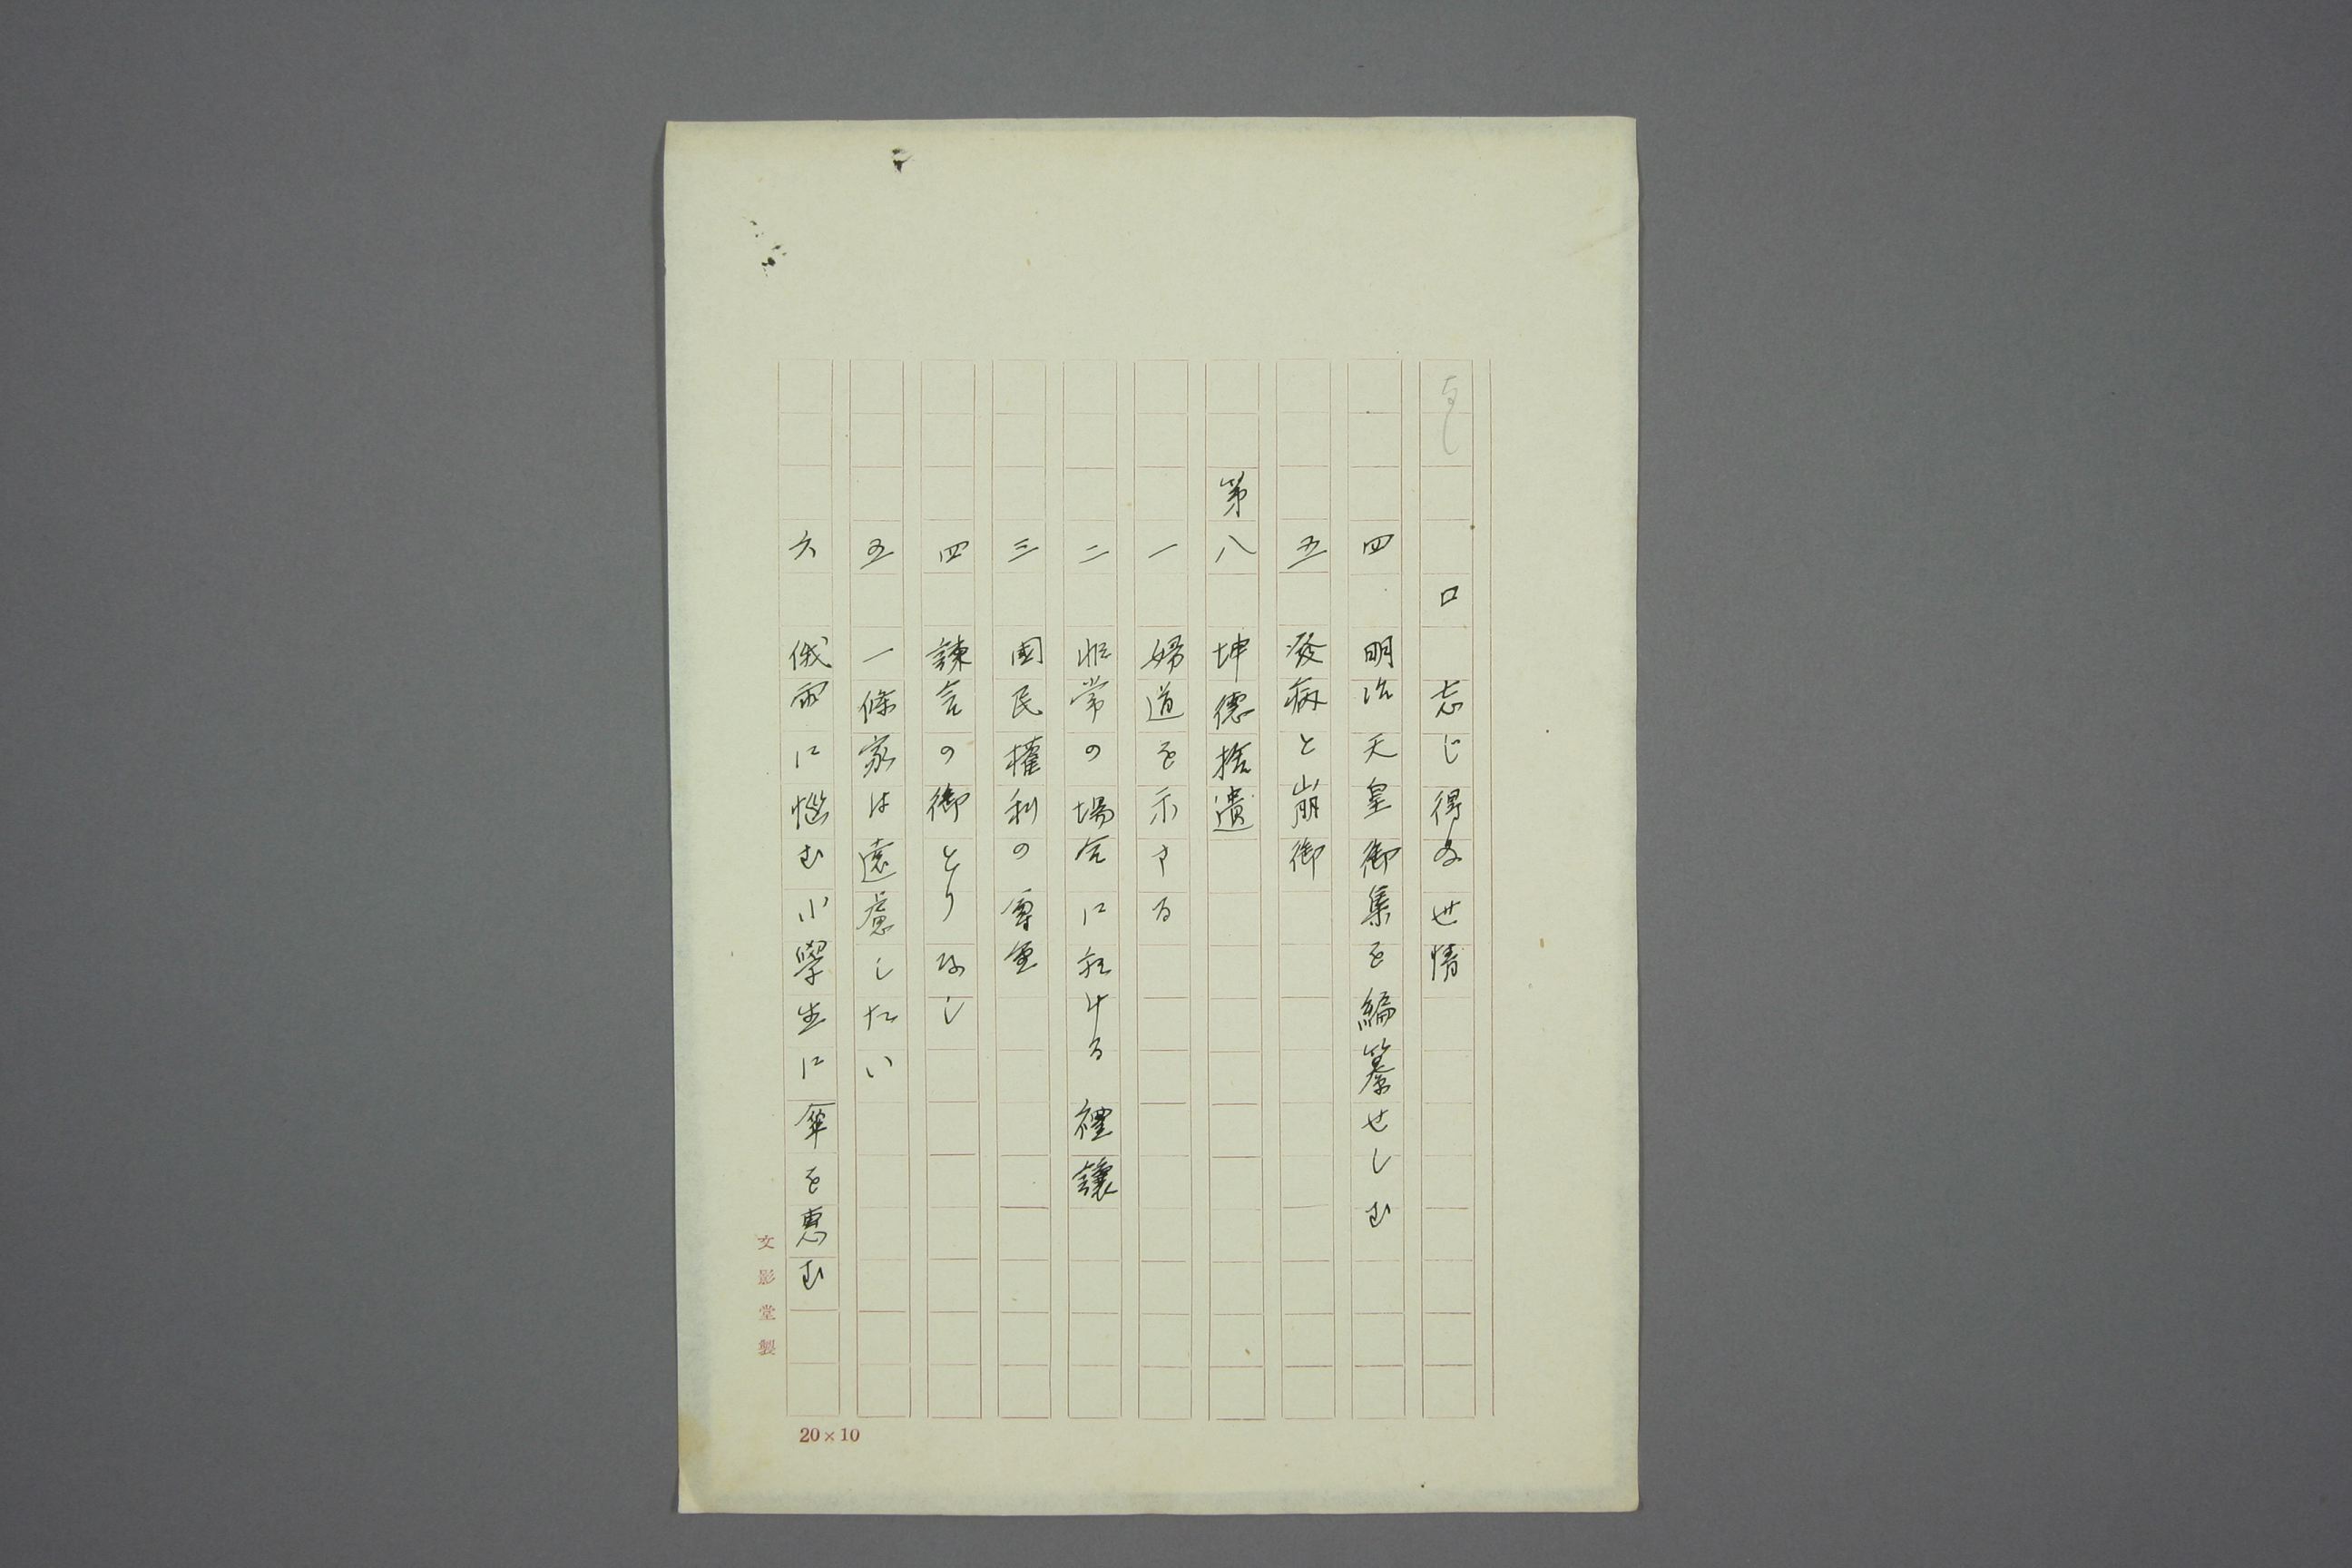 ロ 忘じ得ぬ世情
四 明治天皇御集を編纂せしむ
五 發病と崩御
第八 坤德拾遺
一 婦道を示さる
二 非常の場合に於ける禮讓
三 國民權利の尊重
四 諫言の御とりなし
五 一條家は遠慮したい
六 俄雨に惱む小學生に傘を惠む
文影堂製
20×10